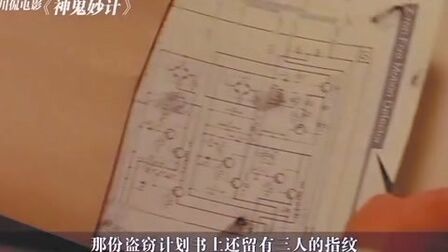 川侃电影《神鬼妙计》
Motion Detector
那份盗窃计划书上还留有三人的指纹